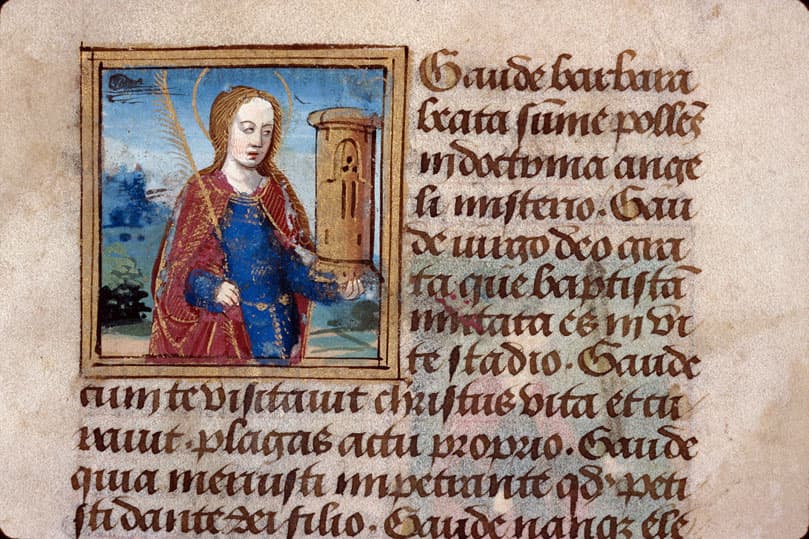 Gaude barbara
beata sume polles
in doctrina ange
li misterio. Gau
de uirgo deo gra
ta que baptistā
imitata es in vi
te stadio. Gaude
cum te visitauit christus vita et cu
rauit. plagas actu proprio. Gaude
quia meruisti impetrante qd peti
sti dante dei filio. Gaude nanqz ele